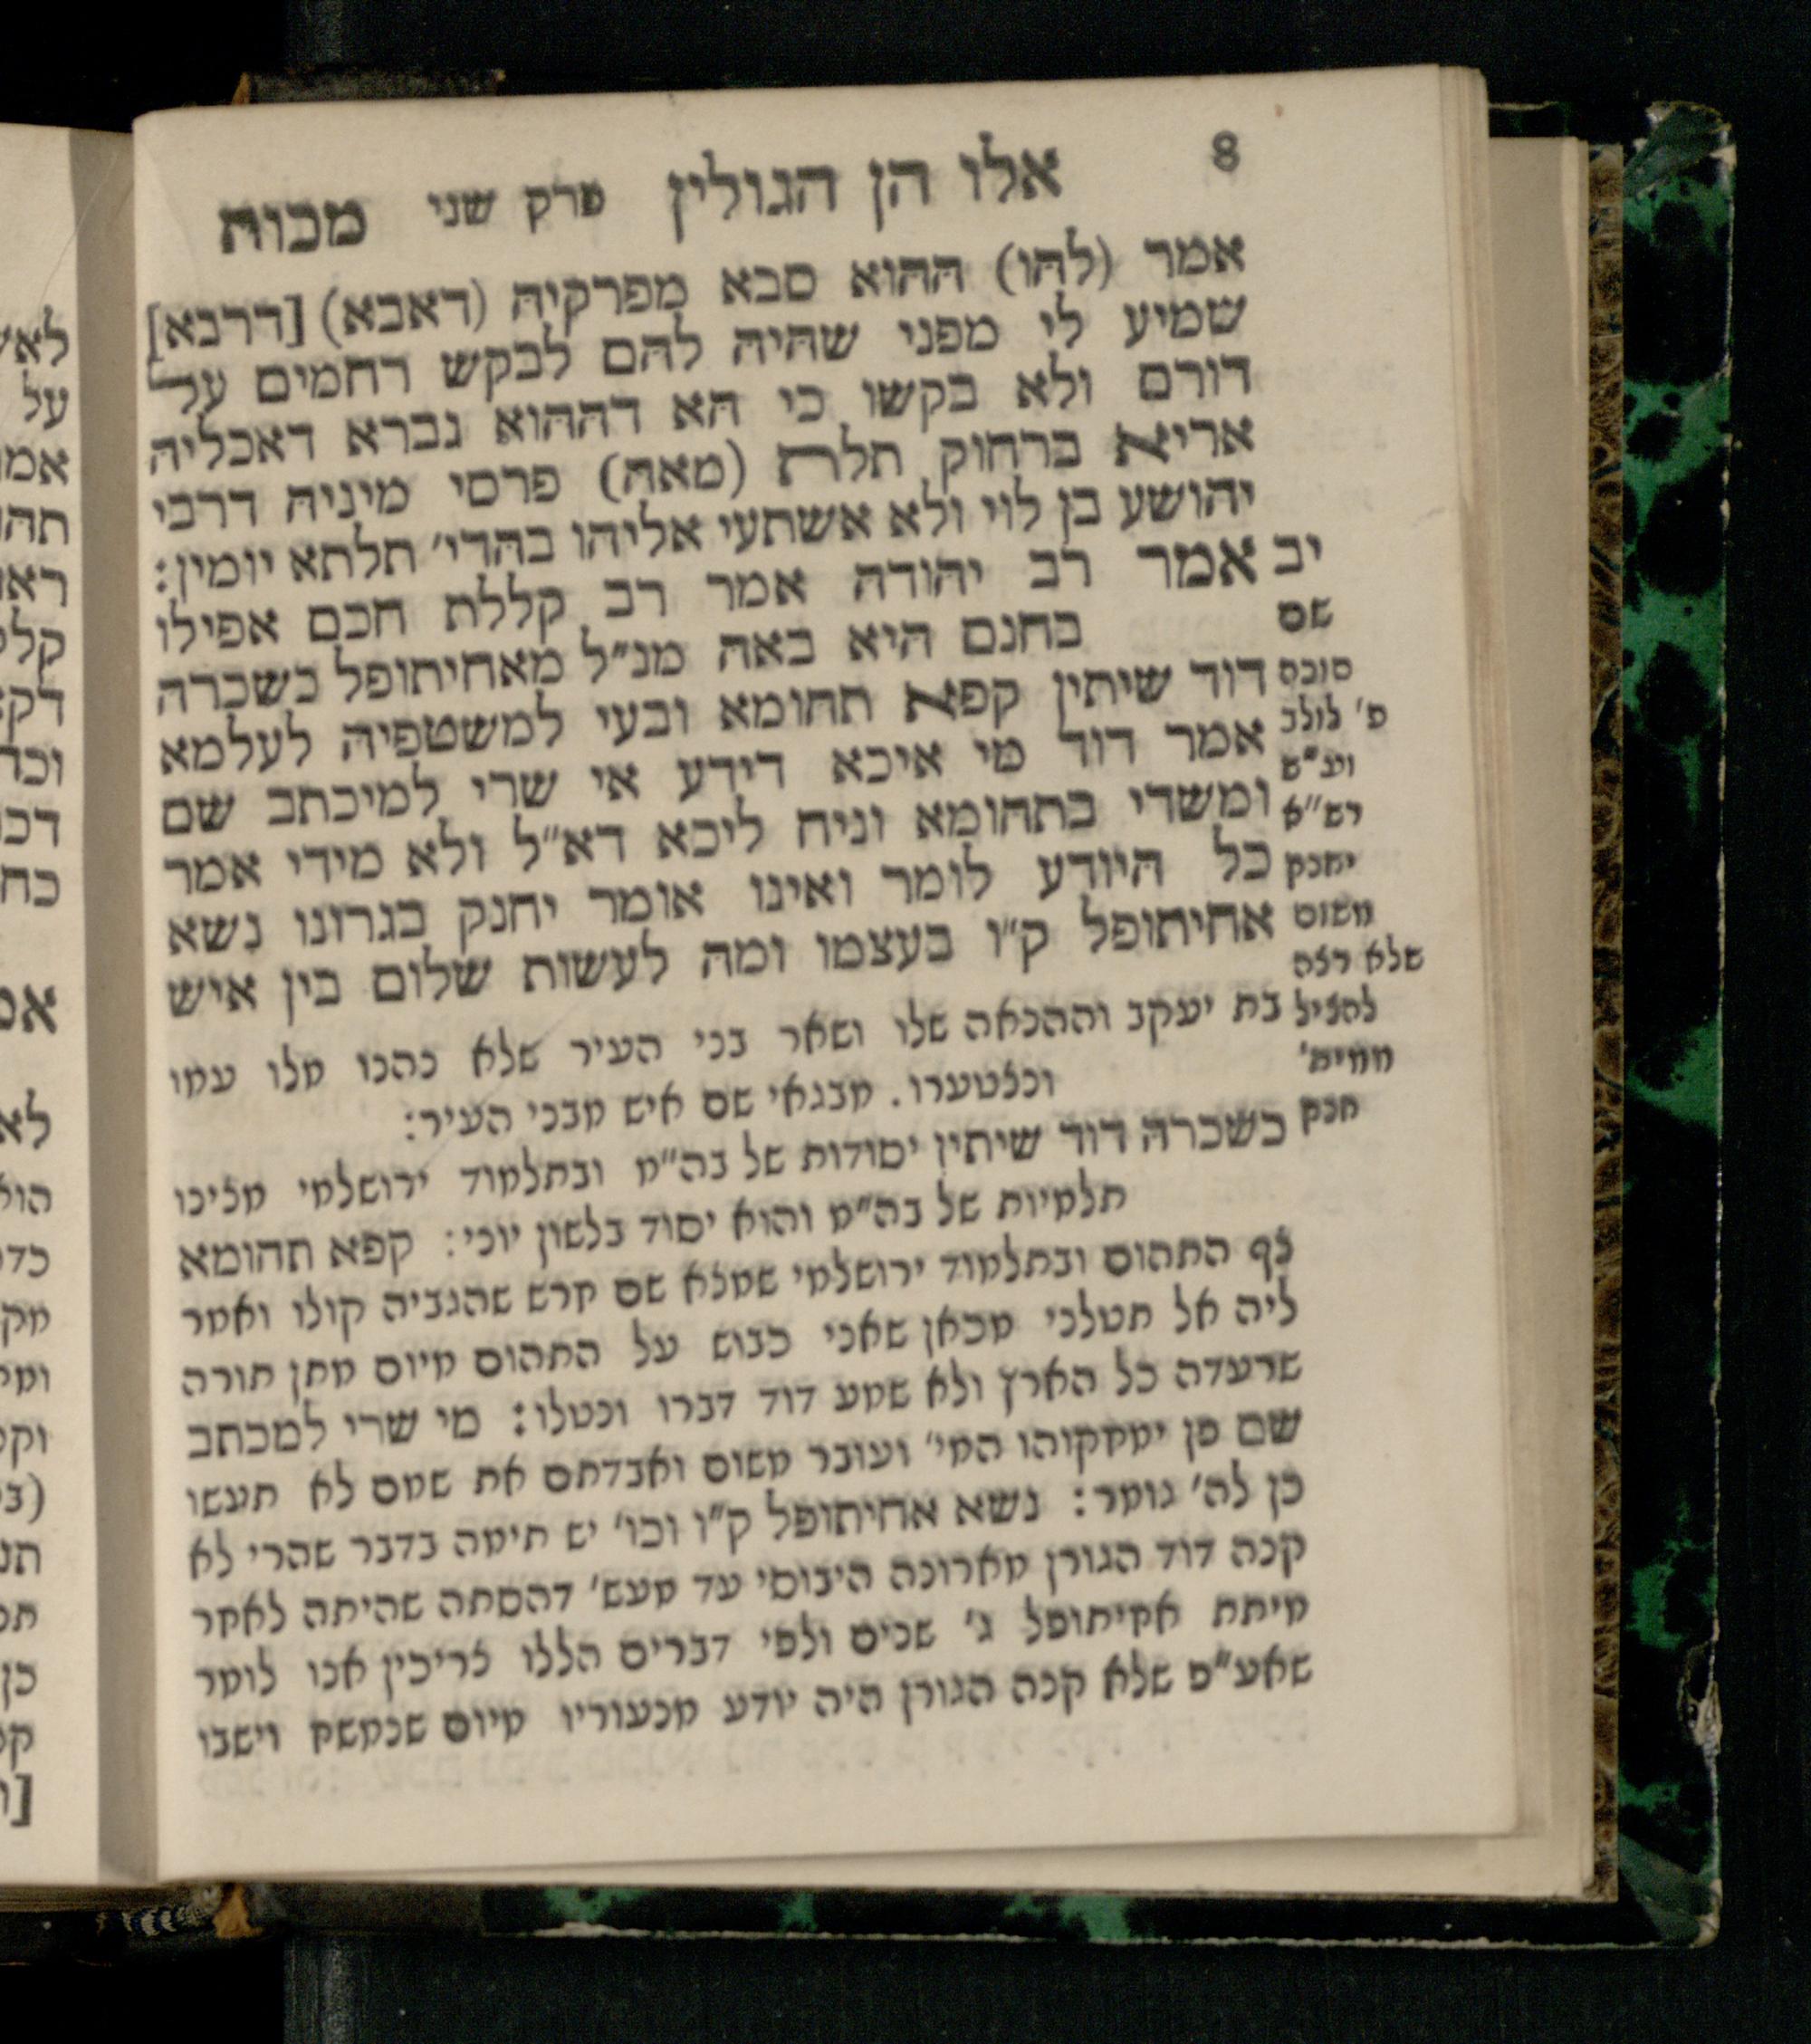 8
אלו הן הגולין פרק שני מכות
אמר (להו) ההוא סבא מפרקיה (דאבא) [דרבא]
שמיע לי מפני שהיה להם לבקש רחמים על
דורם ולא בקשו כי הא דההוא גברא דאכליה
אריא ברחוק תלת (מאה) פרסי מיניה דרבי
יהושע בן לוי ולא אשתעי אליהו בהדי׳ תלתא יומין:
יב אמר רב יהודה אמר רב קללת חכם אפילו
בחנם היא באה מנ״ל מאחיתופל כשכרה
דוד שיתין קפא תהומא ובעי למשטפיה לעלמא
אמר דוד מי איכא דידע אי שרי למיכתב שם
ומשדי בתהומא וניח ליכא דא״ל ולא מידי אמר
כל היודע לומר ואינו אומר יחנק בגרונו נשא
אחיתופל ק״ו בעצמו ומה לעשות שלום בין איש
שם
סוכה
פ׳ לולב
וע״ש
רש״א
יחנק
משום
שלא רצה
להציל
ממית׳
חנק
בת יעקב וההכאה שלו ושאר בני העיר שלא נהנו מלו עמו
ונצטערו. מבנאי שם איש מבני העיר:
כשכרה דוד שיתין יסודות של בה״מ ובתלמוד ירושלמי מצינו
תלמיות של בה״מ והוא יסוד בלשון יוני: קפא תהומא
צף התהום ובתלמוד ירושלמי שמצא שם חרש שהגביה קולו ואמר
ליה אל תטלני מכאן שאני כבוש על התהום מיום מתן תורה
שרעדה כל הארץ ולא שמע דוד דברו ונטלו: מי שרי למכתב
שם פן ימחקוהו המי׳ ועובר משום ואבדתם את שמם לא תעשו
כן לה׳ גומר: נשא אחיתופל ק״ו וכו׳ יש תימה בדבר שהרי לא
קנה דוד הגורן מארונה היבוסי עד מעש׳ דהסתה שהיתה לאחר
מיתת אחיתופל ג׳ שנים ולפי דברים הללו צריכין אנו לומר
שאע״פ שלא קנה הגורן היה יודע מנעוריו מיום שנמשח וישבו